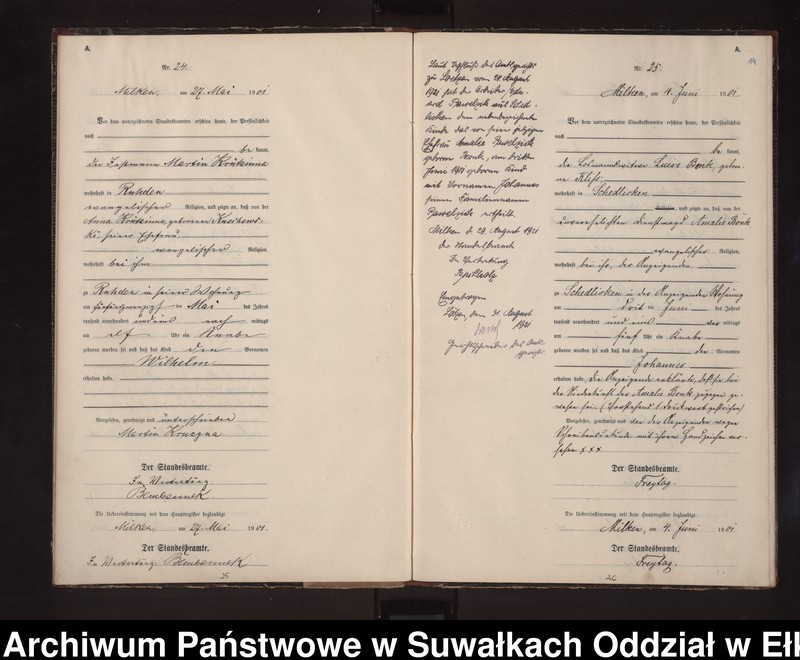 A.
Nr. 24.
Milken, am 27. Mai 1901
Vor dem unterzeichneten Standesbeamten erschien heute, der Persönlichkeit
nach
be kannt,
der Martin Krukinna
wohnhaft in Ruhden
evangelischer Religion, und zeigte an, daß von der
Anna geborenen
seiner Ehefrau
evangelischer Religion,
wohnhaft bei ihm
zu Ruhden in seiner Wohnung
am fünfundzwanzigsten Mai des Jahres
tausend neunhundert und eins nach mittags
um elf Uhr ein Knabe
geboren worden sei und daß das Kind den Vornamen
Wilhelm
erhalten habe.
Vorgelesen, genehmigt und unterschrieben
Martin Kruzyna
Der Standesbeamte.
In Vertretung
Bembennek
Die Uebereinstimmung mit dem Hauptregister beglaubigt
Milken, am 27. Mai 1901.
Der Standesbeamte.
In Vertretung Bembennek
25
Laut Beschluß des Amtsgerichts
zu Loetzen vom 24. August
1921 hat der Arbeiter Edu-
ard Pawelzick aus Sched-
lisken dem nebenbezeichneten
Kinde das von seiner jetzigen
Ehefrau Amalie Pawelzick
geborene Bonk, am dritten
Juni 1901 geborene Kind
mit Vornamen Johannes
seinen Familiennamen
Pawelzick erteilt.
Milken d. 29. August 1921
Der Standesbeamte
In Vertretung
Eingetragen
Lötzen, den 31. August
1921
Gerichtsschreiber des Amts-
gerichts
A.
14
Nr. 25.
Milken, am 4. Juni 1901
Vor dem unterzeichneten Standesbeamten erschien heute, der Persönlichkeit
nach
be kannt,
die Losmannswitwe Luise Bonk, gebo-
rne
wohnhaft in Schedlisken
Religion, und zeigte an, daß von der
unverehelichten Dienstmagd Amalie Bonk
evangelischer Religion,
wohnhaft bei ihr, der Anzeigenden
zu Schedlisken in der Anzeigenden Wohnung
am dritten Juni des Jahres
tausend neunhundert und eins vor mittags
um fünf Uhr ein Knabe
geboren worden sei und daß das Kind den Vornamen
Johannes
erhalten habe. Die Anzeigende erklärte, daß sie bei
der Niederkunft der Amalie Bonk zugegen ge-
wesen sei. (Vorstehend 1 Druckwort gestrichen)
Vorgelesen, genehmigt und von der Anzeigenden wegen
Schreibensunkunde mit ihrem Handzeichen ver-
sehen x x x
Der Standesbeamte.
Freytag.
Die Uebereinstimmung mit dem Hauptregister beglaubigt
Milken, am 4. Juni 1901
Der Standesbeamte.
Freytag.
26
Archiwum Państwowe w Suwałkach Oddział w Ełk